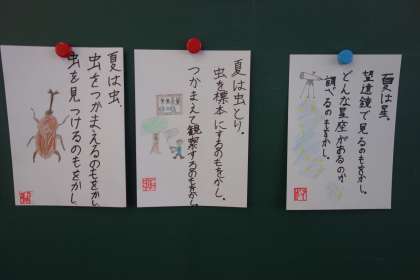 夏は虫。
虫をつかまえるのもをかし。
虫を見つけるのもをかし。
夏は虫とり。
虫を標本にするのもをかし。
つかまえて観察するのもをかし。
夏は星。
望遠鏡で見るのもをかし。
どんな星座があるのか
調べるのもをかし。